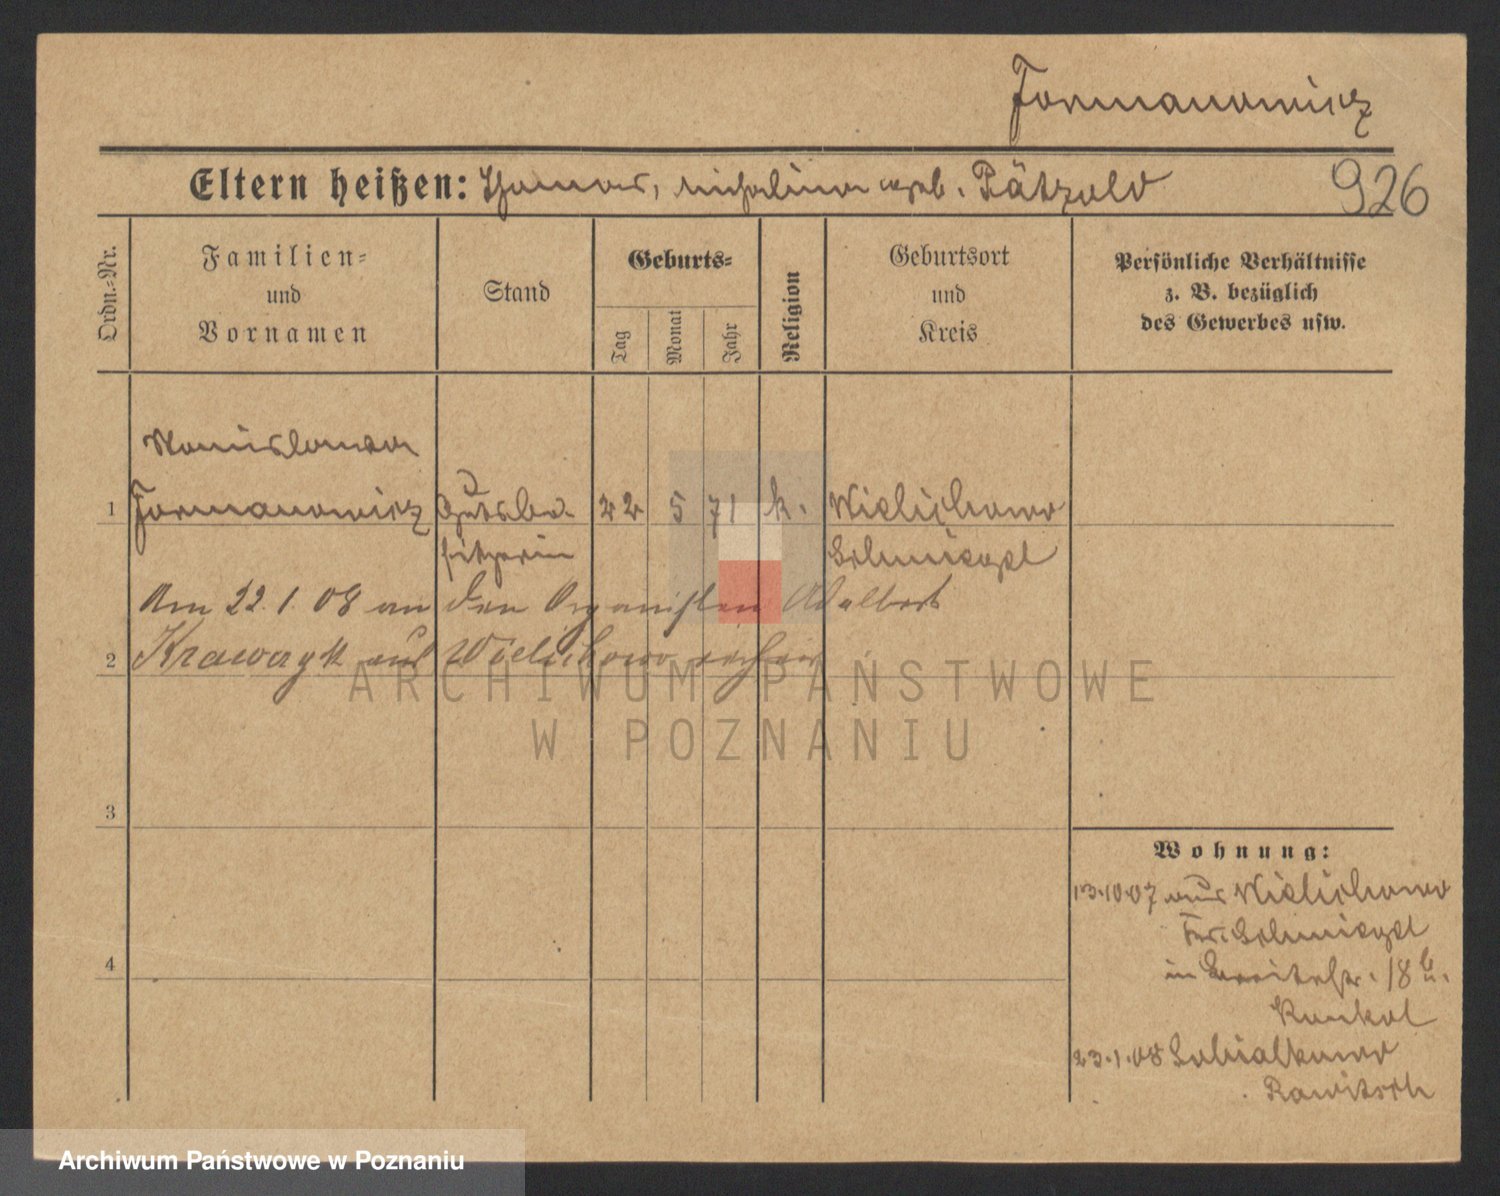 Formanowicz
Eltern heißen: Thomas, Michalina geb. Pätzold 926
Ordn.-Nr.
Familien-
und
Vornamen
Stand
Geburts-
Tag
Monat
Jahr
Religion
Geburtsort
und
Kreis
Persönliche Verhältnisse
z. B. bezüglich
des Gewerbes usw.
Stanislawa
1 Formanowicz Gutsbe- 22 5 71 k. Wielichowo
sitzerin Schmiegel
Am 22.1.08 an den Organisten Adalbert
2 Krawczyk aus Wielichowo
ARCHIWUM PAŃSTWOWE
W POZNANIU
3
Wohnung:
13.10.07 aus Wielichowo
Krs. Schmiegel
4
in Breitestr. 18 b.
Kunkel
23.1.08 Sobialkowo
Rawitsch
Archiwum Państwowe w Poznaniu